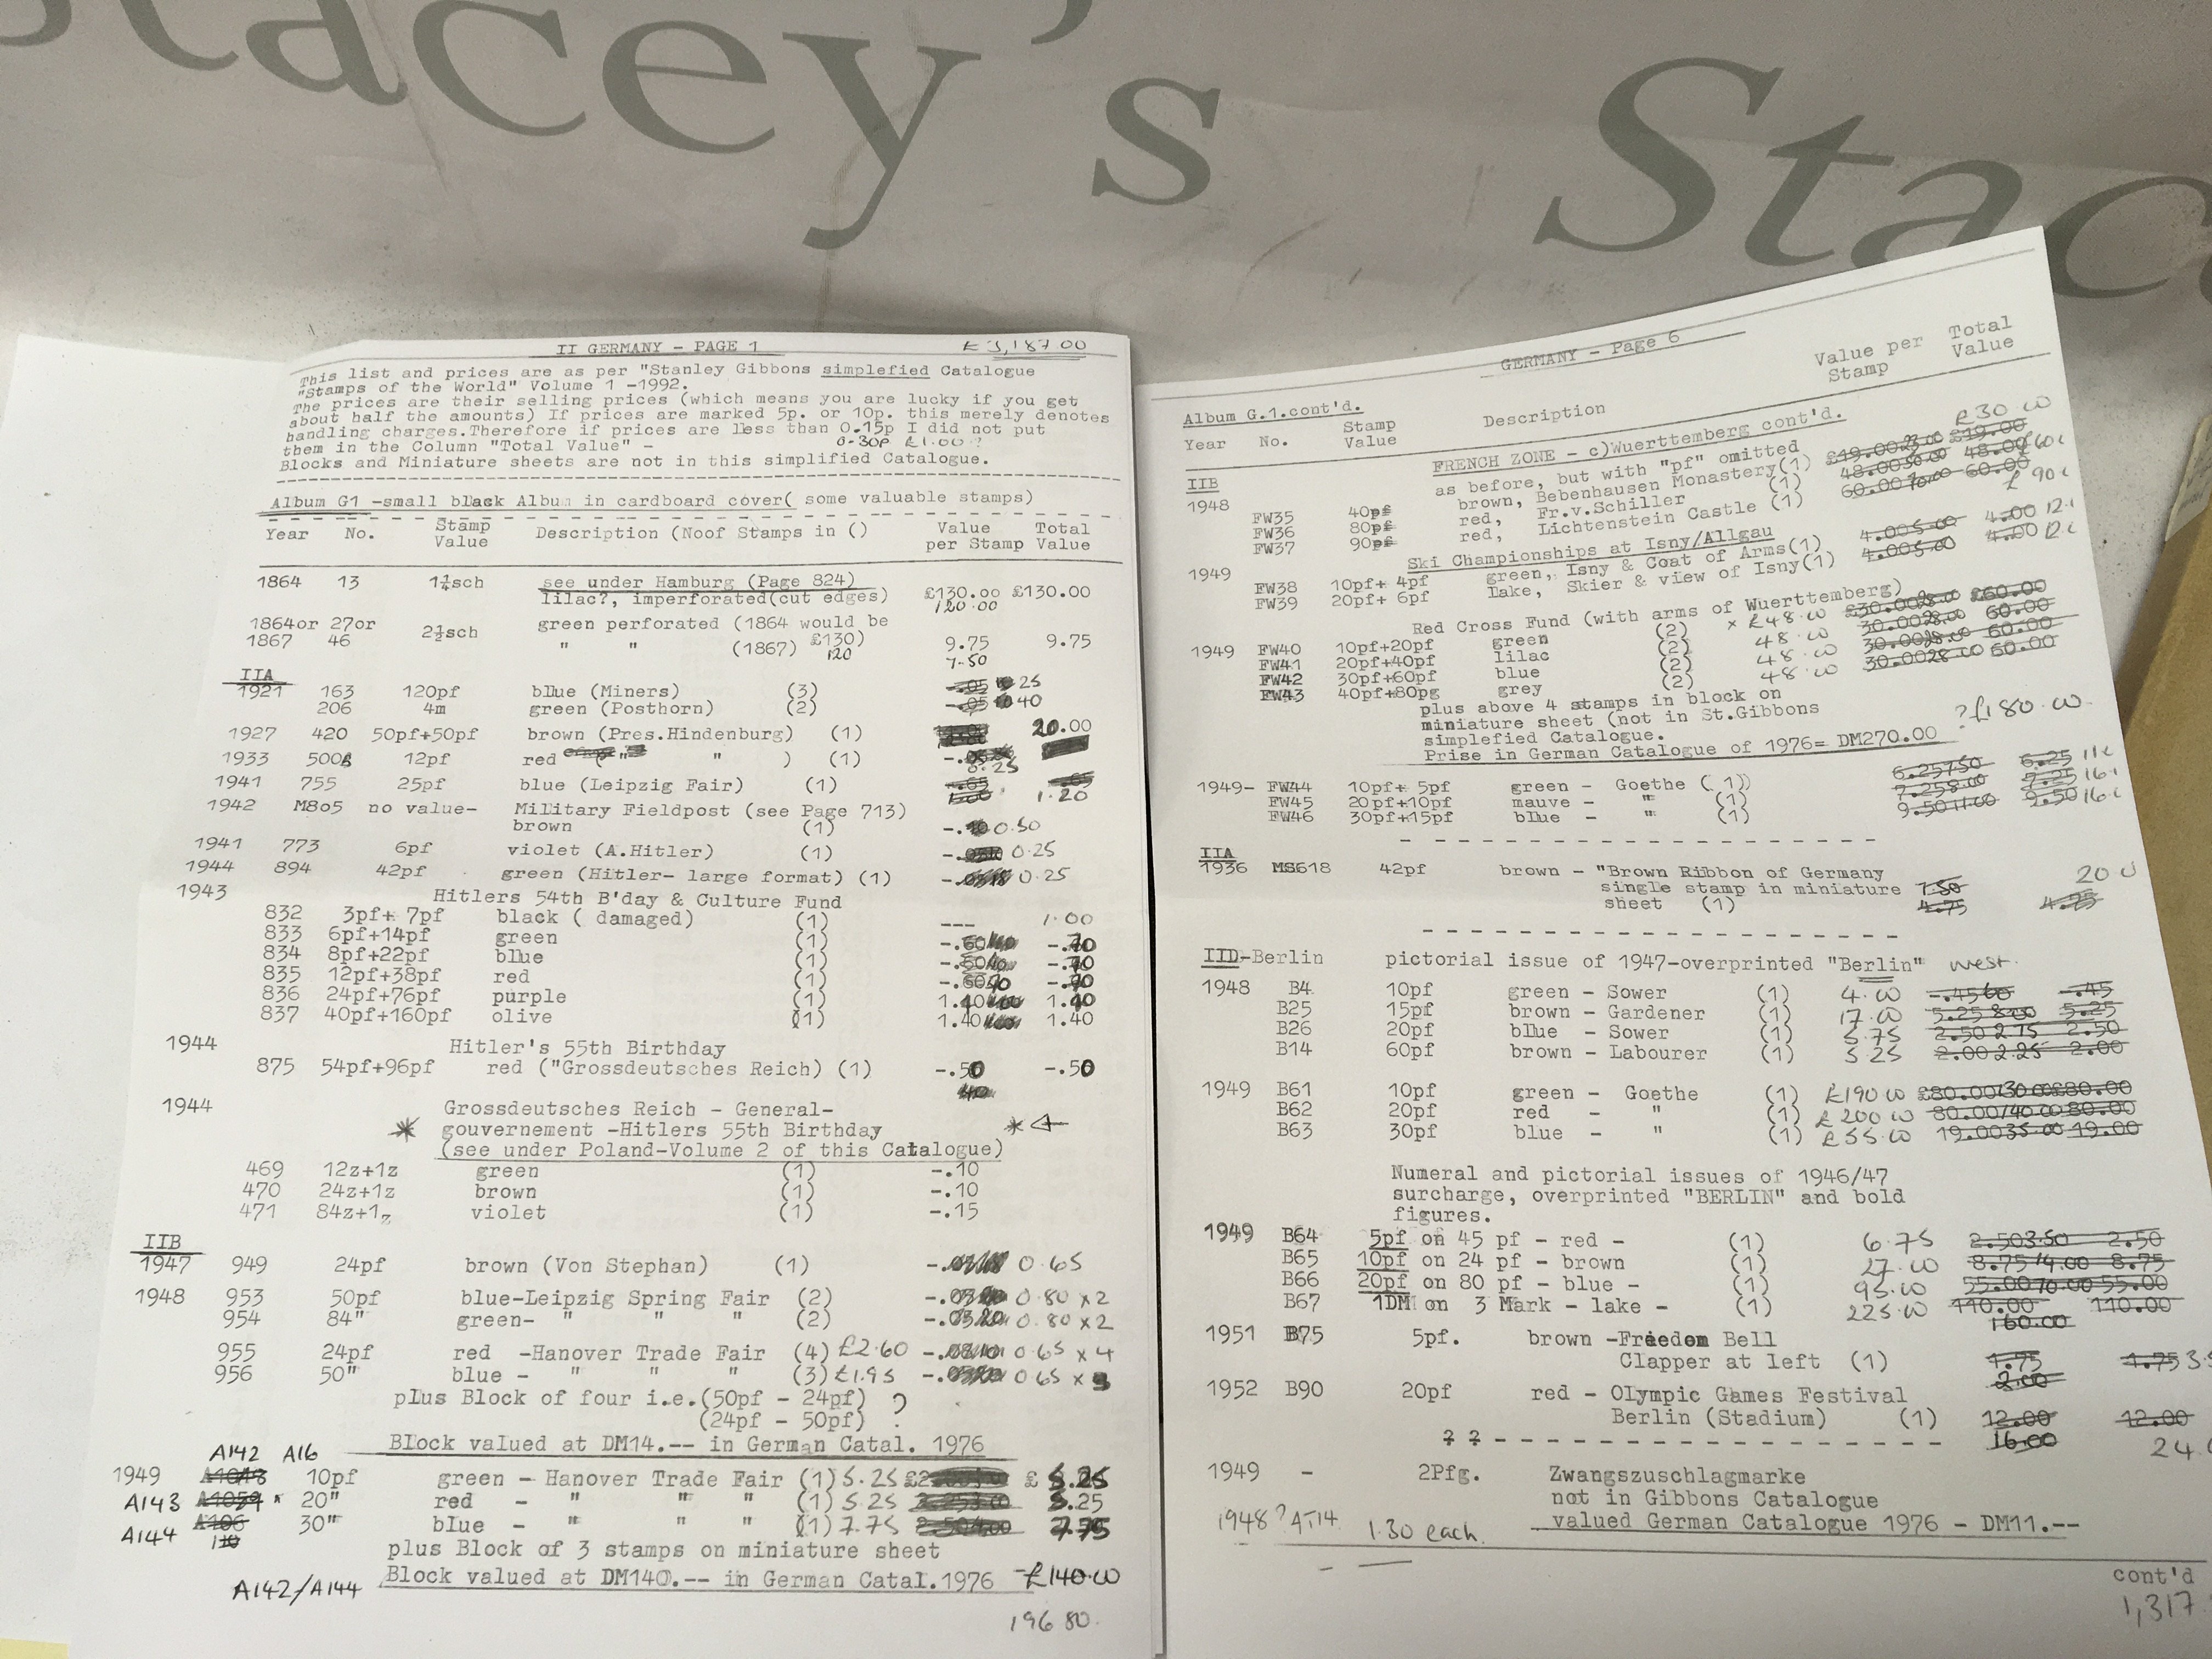 Stacey's Stac
II GERMANY - PAGE 1 £3,187.00
This list and prices are as per "Stanley Gibbons simplefied Catalogue
"Stamps of the World" Volume 1 -1992.
The prices are their selling prices (which means you are lucky if you get
about half the amounts) If prices are marked 5p. or 10p. this merely denotes
handling charges.Therefore if prices are less than 0.15p I did not put
them in the Column "Total Value" - 0-30p £1.00?
Blocks and Miniature sheets are not in this simplified Catalogue.
Album G1 -small black Album in cardboard cover( some valuable stamps)
Year No. Stamp Value Description (Noof Stamps in () Value per Stamp Total Value
1864 13 1¼sch see under Hamburg (Page 824)
lilac?, imperforated(cut edges) £130.00 £130.00
120.00
1864or 27or 2½sch green perforated (1864 would be
1867 46 " " (1867) £130) 9.75 9.75
120 7.50
IIA
1921 163 120pf blue (Miners) (3) 25
206 4m green (Posthorn) (2) 40
1927 420 50pf+50pf brown (Pres.Hindenburg) (1) 20.00
1933 500B 12pf red " " ) (1)
0.25
1941 755 25pf blue (Leipzig Fair) (1) -.65 -.65
1.00 1.20
1942 M805 no value- Military Fieldpost (see Page 713)
brown (1) 0.50
1941 773 6pf violet (A.Hitler) (1) 0.25
1944 894 42pf green (Hitler- large format) (1) 0.25
1943 Hitlers 54th B'day & Culture Fund
832 3pf+ 7pf black ( damaged) (1) --- 1.00
833 6pf+14pf green (1) -.70
834 8pf+22pf blue (1) -.70
835 12pf+38pf red (1) -.70
836 24pf+76pf purple (1) 1.40 1.40
837 40pf+160pf olive (1) 1.40 1.40
1944 Hitler's 55th Birthday
875 54pf+96pf red ("Grossdeutsches Reich) (1) -.50 -.50
40
1944 Grossdeutsches Reich - General-
* gouvernement -Hitlers 55th Birthday *
(see under Poland-Volume 2 of this Catalogue)
469 12z+1z green (1) -.10
470 24z+1z brown (1) -.10
471 84z+1z violet (1) -.15
IIB
1947 949 24pf brown (Von Stephan) (1) 0.65
1948 953 50pf blue-Leipzig Spring Fair (2) 0.80 x 2
954 84" green- " " " (2) 0.80 x 2
955 24pf red -Hanover Trade Fair (4) £2.60 0.65 x 4
956 50" blue - " " " (3) £1.95 0.65 x 3
plus Block of four i.e.(50pf - 24pf)
(24pf - 50pf) ?
Block valued at DM14.-- in German Catal. 1976
A142 A16
1949 10pf green - Hanover Trade Fair (1) 5.25 £ 5.25
A143 A1059 20" red - " " " (1) 5.25 5.25
A144 A106 30" blue - " " " (1) 7.75 7.75
plus Block of 3 stamps on miniature sheet
A142/A144 Block valued at DM140.-- in German Catal.1976 -£140.00
196 80.
GERMANY - Page 6
Album G.1.cont'd. Value per Stamp Total Value
Year No. Stamp Value Description
FRENCH ZONE - c)Wuerttemberg cont'd. £30 00
IIB as before, but with "pf" omitted
1948 FW35 40pf brown, Bebenhausen Monastery(1) £19.00 23.00 £19.00
FW36 80pf red, Fr.v.Schiller (1) 48.00 50.00 48.00 £60
FW37 90pf red, Lichtenstein Castle (1) 60.00 70.00 60.00 £ 90
Ski Championships at Isny/Allgau
1949 FW38 10pf+ 4pf green, Isny & Coat of Arms(1) 4.00 5.00 4.00 12.
FW39 20pf+ 6pf Lake, Skier & view of Isny(1) 4.00 5.00 4.00 12.
Red Cross Fund (with arms of Wuerttemberg)
1949 FW40 10pf+20pf green (2) x £48.00 £30.00 28.00 £60.00
FW41 20pf+40pf lilac (2) 48.00 30.00 28.00 60.00
FW42 30pf+60pf blue (2) 48.00 30.00 28.00 60.00
FW43 40pf+80pg grey (2) 48.00 30.00 28.00 60.00
plus above 4 stamps in block on
miniature sheet (not in St.Gibbons
simplefied Catalogue. ?£180.00.
Prise in German Catalogue of 1976= DM270.00
1949- FW44 10pf+ 5pf green - Goethe ( 1)) 6.25 7.50 6.25 11
FW45 20pf+10pf mauve - " (1) 7.25 8.00 7.25 16
FW46 30pf+15pf blue - " (1) 9.50 11.00 9.50 16
IIA
1936 MS618 42pf brown - "Brown Ribbon of Germany
single stamp in miniature 7.50 20 0
sheet (1) 4.75 4.75
IID-Berlin pictorial issue of 1947-overprinted "Berlin" west.
1948 B4 10pf green - Sower (1) 4.00 -.45 60 -.45
B25 15pf brown - Gardener (1) 17.00 5.25 8.00 5.25
B26 20pf blue - Sower (1) 5.75 2.50 2.75 2.50
B14 60pf brown - Labourer (1) 5.25 2.00 2.25 2.00
1949 B61 10pf green - Goethe (1) £190 00 £80.00 130.00 £80.00
B62 20pf red - " (1) £ 200 00 80.00 140.00 80.00
B63 30pf blue - " (1) £55.00 19.00 35.00 19.00
Numeral and pictorial issues of 1946/47
surcharge, overprinted "BERLIN" and bold
figures.
1949 B64 5pf on 45 pf - red - (1) 6.75 2.50 3.50 2.50
B65 10pf on 24 pf - brown (1) 27.00 8.75 14.00 8.75
B66 20pf on 80 pf - blue - (1) 95.00 55.00 70.00 55.00
B67 1DM on 3 Mark - lake - (1) 225.00 110.00 110.00
160.00
1951 B75 5pf. brown -Freedom Bell
Clapper at left (1) 1.75 1.75 3.
2.00
1952 B90 20pf red - Olympic Games Festival
Berlin (Stadium) (1) 12.00 12.00
? ? 16.00 24.
1949 - 2Pfg. Zwangszuschlagmarke
not in Gibbons Catalogue
1948? AT14 1.30 each. valued German Catalogue 1976 - DM11.--
cont'd
1,317